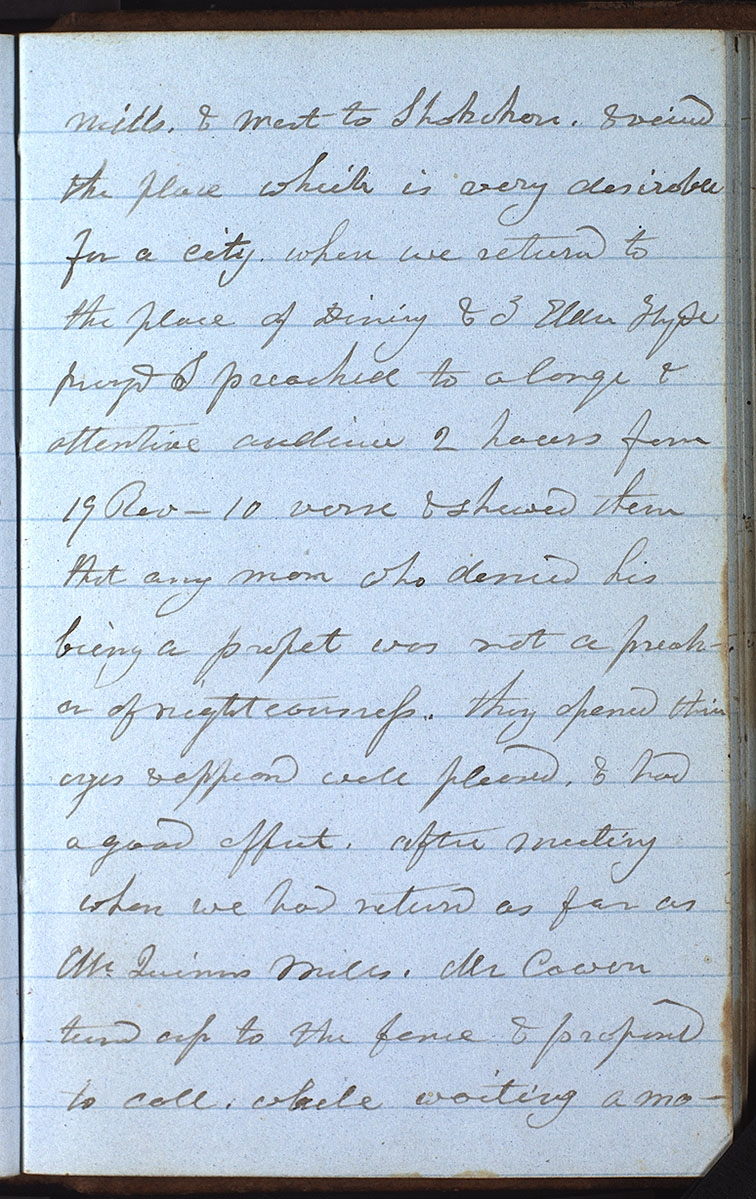 mills. & went to Shokokon. & vieind
the place which is very desirable
for a city. when we returnd to
the place of Dining & Elder Hyde
prayd I preached to a large &
attentive audience 2 hours from
19 Rev — 10 verse & shewed them
that any man who denied his
being a propet was not a preach-
er of righteousness. they opened their
eyes & appeard well pleased. & had
a good effect. after meeting
when we had returnd as far as
Mc Quinns Mills. Mr Cowen
turnd up to the fence & proposed
to call. while waiting a mo-